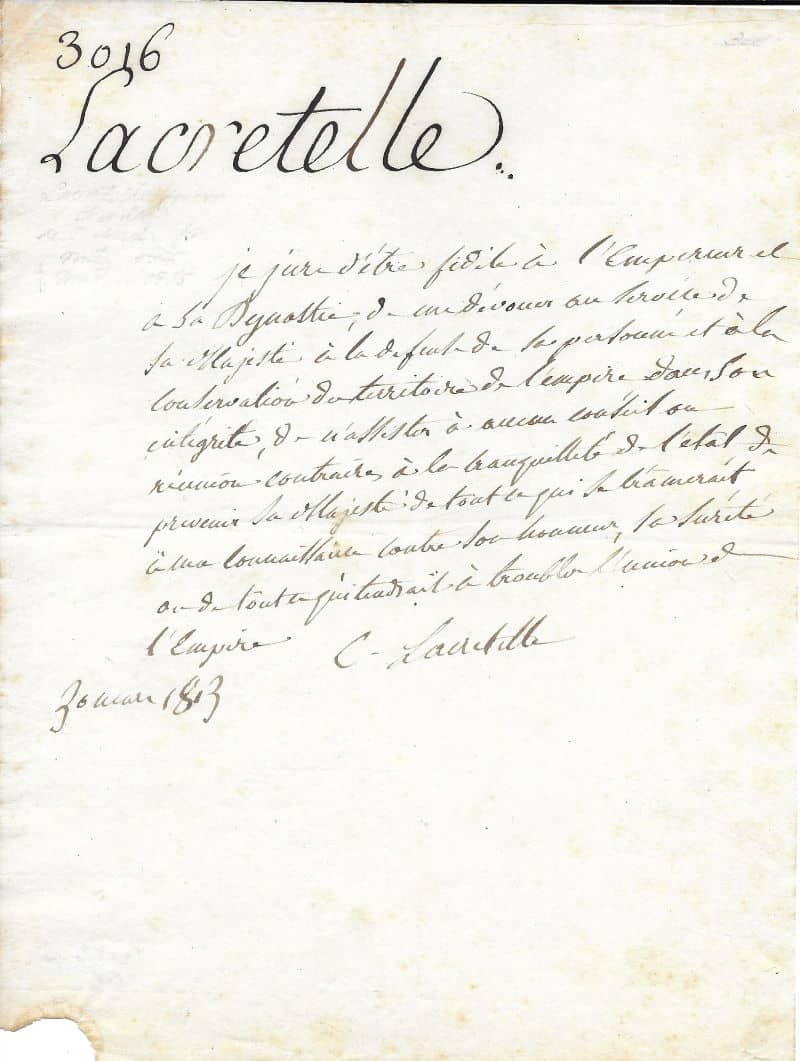 3016
Lacretelle.
je jure d'être fidele à l'Empereur et
a sa Dynastie, de me dévouer au service de
sa Majesté à la defense de sa personne et à la
conservation du territoire de l'empire dans son
intégrité, de n'assister à aucun conseil ou
réunion contraires à la tranquillité de l'état de
prevenir sa Majesté de tout ce qui se trâmerait
à ma connaissance contre son honneur, sa sûreté
ou de tout ce qui tendrait à troubler l'union de
l'Empire C. Lacretelle
30 mars 1813